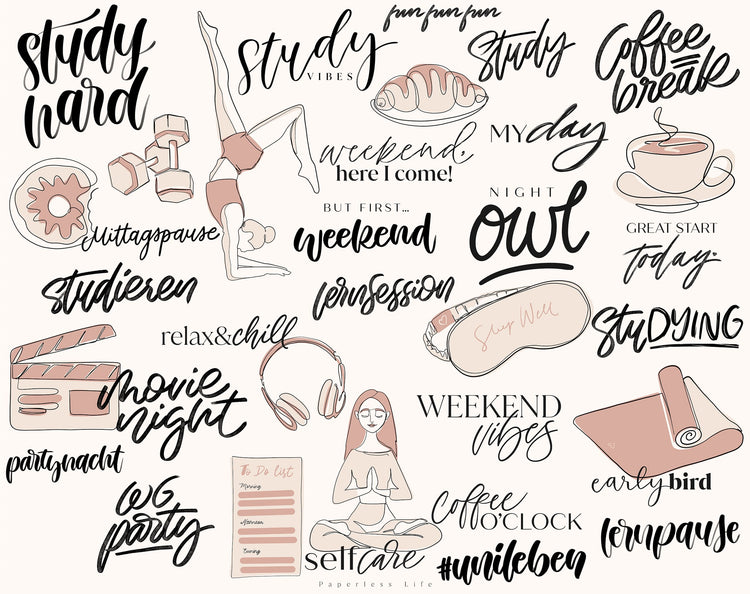 fun fun fun
study
hard
Study
VIBES
Study
Coffee
break
MY day
weekend,
here I come!
NIGHT
owl
BUT FIRST...
weekend
GREAT START
today.
Mittagspause
studieren
lernsession
Sleep Well
StuDYING
relax&chill
movie
night
WEEKEND
vibes
partynacht
To Do list
Morning
Afternoon
Evening
WG
party
earlybird
coffee
O'CLOCK
lernpause
selfcare
#unileben
Paperless Life